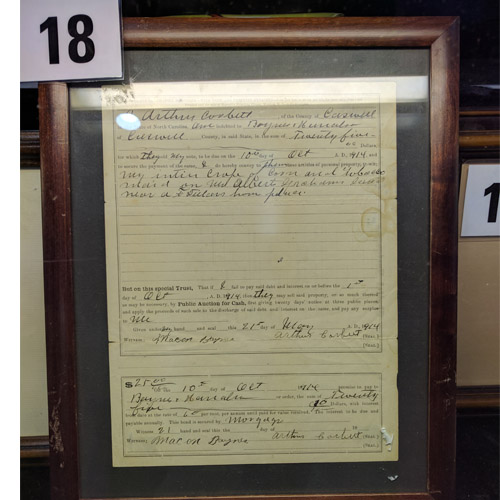 18
1
Arthur Corbett of the County of Caswell
of North Carolina, am indebted to Baynes & Kernodle
of Caswell County, in said State, in the sum of Twenty five
Dollars,
for which they hold my note, to be due on the 10th day of Oct A. D. 1914, and
to secure the payment of the same, I do hereby convey to them these articles of personal property, to wit,
My entire Crop of Corn and tobacco
on Albert
near
But on this special Trust, That if I fail to pay said debt and interest on or before the 1st
day of Oct, A. D. 1914, then they may sell said property, or so much thereof
as may be necessary, by Public Auction for Cash, first giving twenty days' notice at three public places
and apply the proceeds of such sale to the discharge of said debt and interest on the same, and pay any surplus
to Me
Given under my hand and seal this 21st day of May A. D. 1914
Witness Macon Baynes Arthur Corbett (Seal.)
(Seal.)
$25.00 On the 10th day of Oct 1914 promise to pay to
Baynes & Kernodle or order, the sum of Twenty
five Dollars, with interest
at the rate of 6 per cent, per annum until paid for value received. The interest to be due and
payable annually. This bond is secured by Mortgage
Witness 21 hand and seal this the day of 19
Witness, Macon Baynes Arthur Corbett (Seal.)
(Seal.)